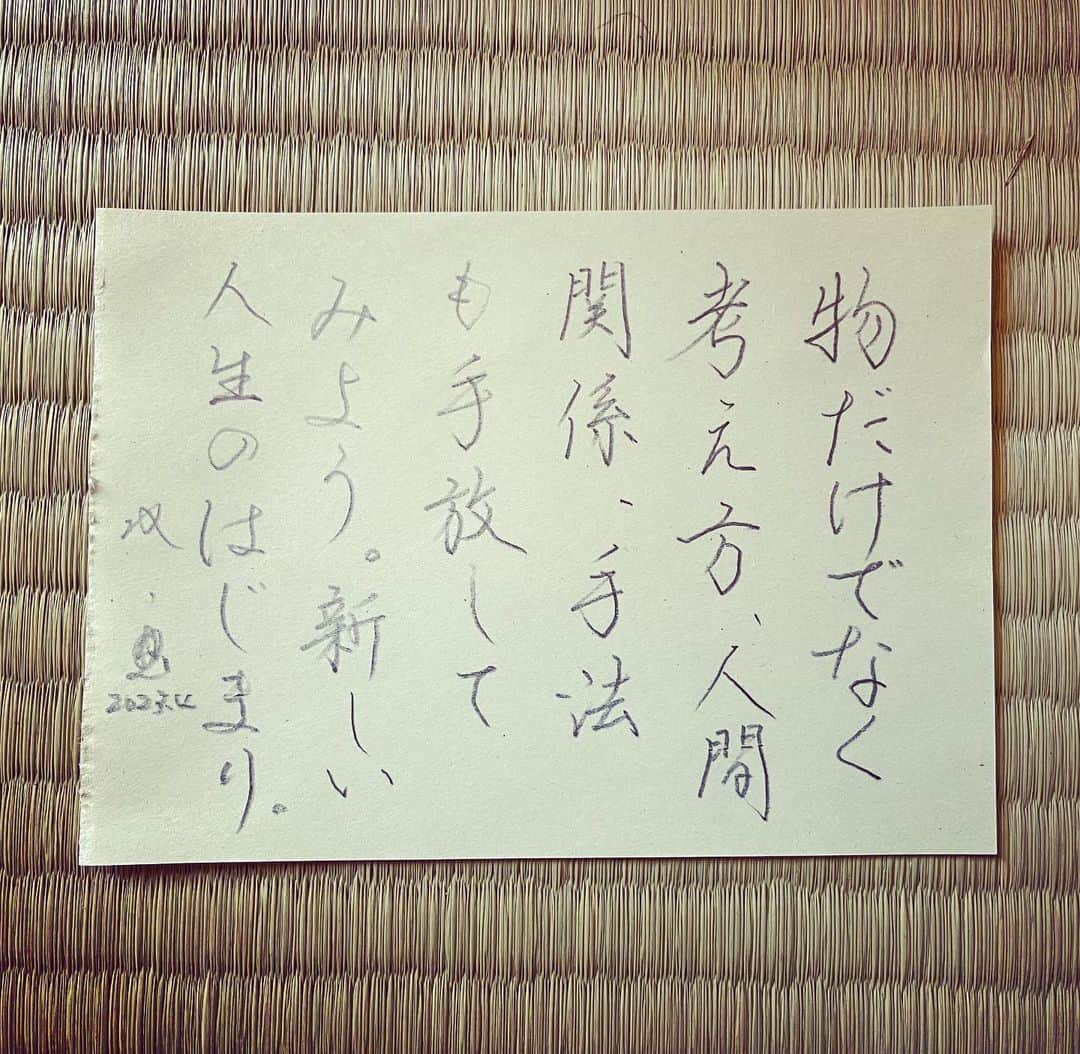 物だけでなく
考え方、人間
関係、手法
も手放して
みよう。新しい
人生のはじまり。